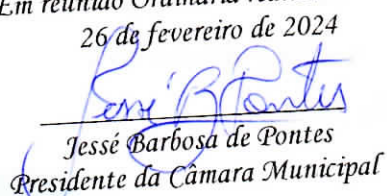 Em reunião Ordinária
26 de fevereiro de 2024
Jessé B Pontes
Jessé Barbosa de Pontes
Presidente da Câmara Municipal